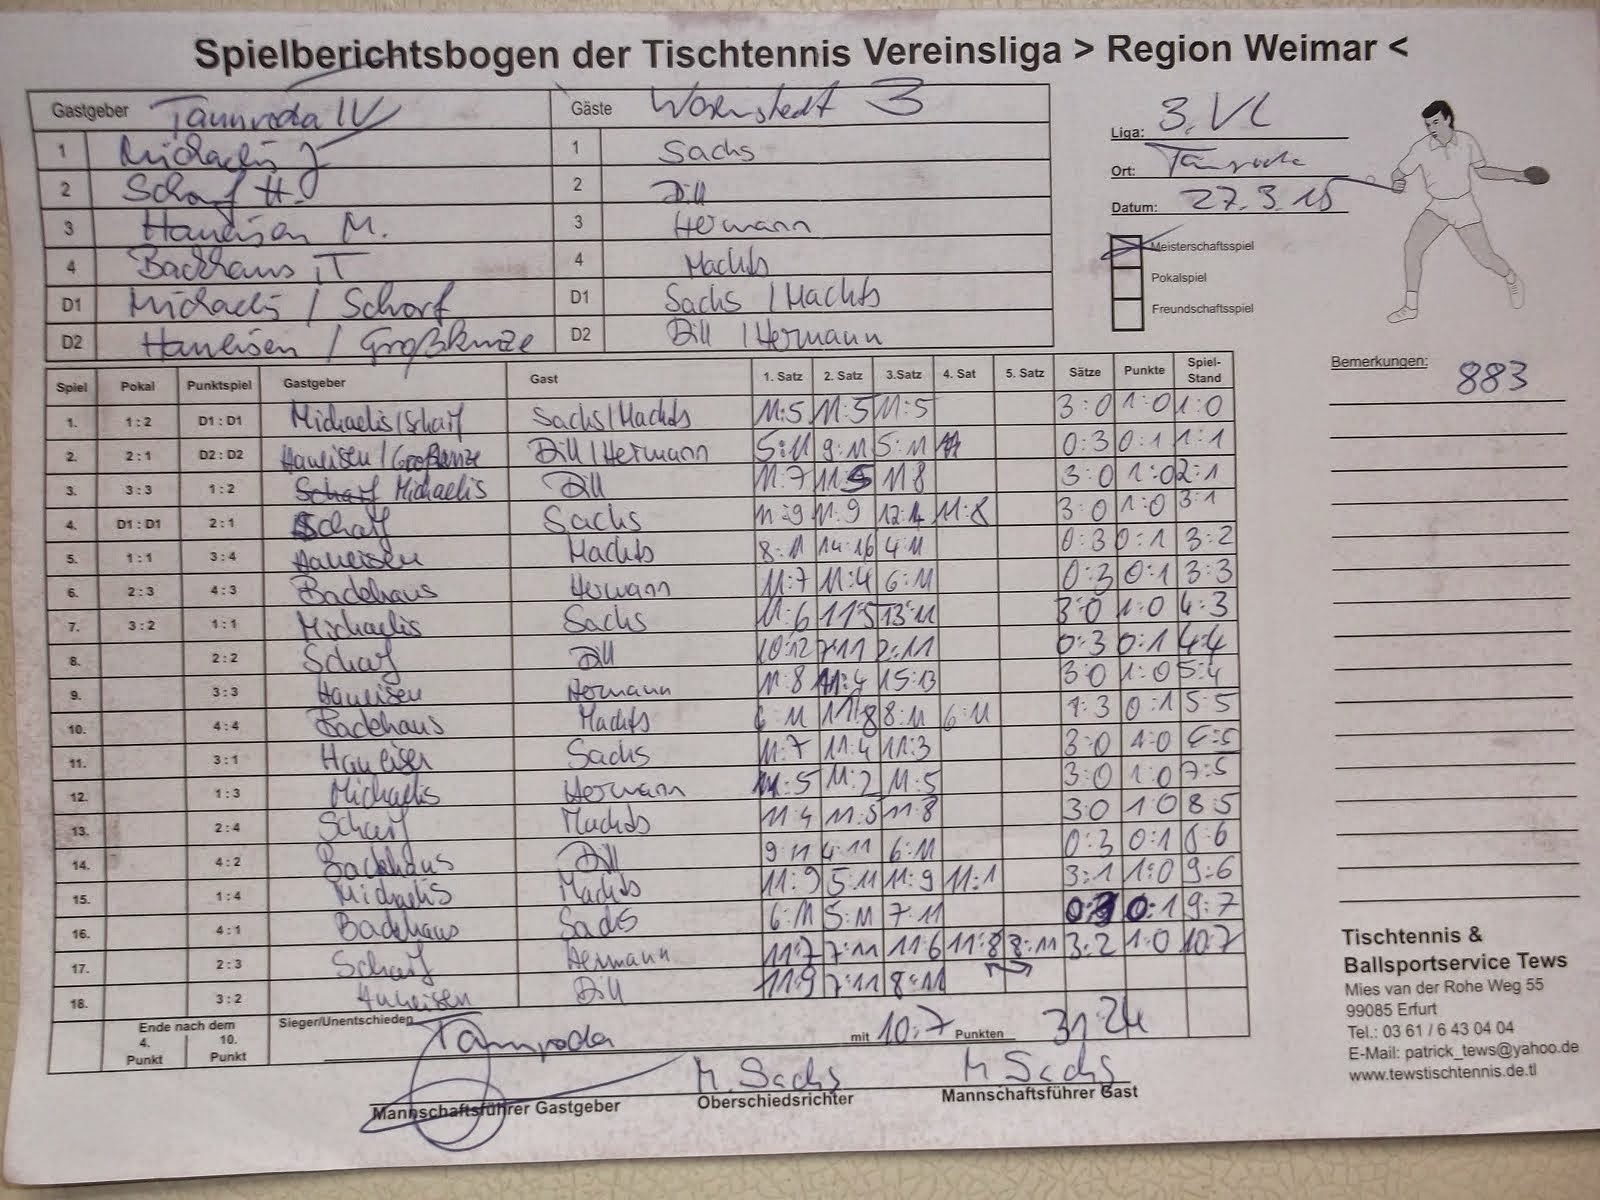 Spielberichtsbogen der Tischtennis Vereinsliga > Region Weimar <
Gastgeber Tannroda IV Gäste 3
1 Michaelis J 1 Sachs
2 Scharf H. 2 Dill
3 Haueisen M. 3 Hermann
4 Backhaus T 4 Machts
D1 Michaelis / Scharf D1 Sachs / Machts
D2 Haueisen / Großkunze D2 Dill / Hermann
Liga: 3. VL
Ort: Tannroda
Datum: 27.3.15
Meisterschaftsspiel
Pokalspiel
Freundschaftsspiel
Bemerkungen: 883
Spiel Pokal Punktspiel Gastgeber Gast 1. Satz 2. Satz 3.Satz 4. Sat 5. Satz Sätze Punkte Spiel-Stand
1. 1:2 D1:D1 Michaelis/Scharf Sachs/Machts 11:5 11:5 11:5 3:0 1:0 1:0
2. 2:1 D2:D2 Haueisen/ Dill/Hermann 5:11 9:11 5:11 0:3 0:1 1:1
3. 3:3 1:2 Scharf Michaelis Dill 11:7 11:5 11 8 3:0 1:0 2:1
4. D1:D1 2:1 Scharf Sachs 11:9 11:9 11:8 3:0 1:0 3:1
5. 1:1 3:4 Haueisen Machts 8:11 14:16 4:11 0:3 0:1 3:2
6. 2:3 4:3 Backhaus Hermann 11:7 11:4 6:11 0:3 0:1 3:3
7. 3:2 1:1 Michaelis Sachs 11:6 11:5 13:11 3:0 1:0 4:3
8. 2:2 Scharf Dill 10:12 7:11 2:11 0:3 0:1 4:4
9. 3:3 Haueisen Hermann 11:8 11:4 15:13 3:0 1:0 5:4
10. 4:4 Backhaus Machts 6:11 11:8 8:11 6:11 1:3 0:1 5:5
11. 3:1 Haueisen Sachs 11:7 11:4 11:3 3:0 1:0 6:5
12. 1:3 Michaelis Hermann 11:5 11:2 11:5 3:0 1:0 7:5
13. 2:4 Scharf Machts 11:4 11:5 11:8 3:0 1 0 8:5
14. 4:2 Backhaus Dill 9:11 4:11 6:11 0:3 0:1 8:6
15. 1:4 Michaelis Machts 11:9 5:11 11:9 11:1 3:1 1:0 9:6
16. 4:1 Backhaus Sachs 6:11 5:11 7:11 0:3 0:1 9:7
17. 2:3 Scharf Hermann 11:7 7:11 11 6 11:8 8:11 3:2 1:0 10:7
18. 3:2 Haueisen Dill 11:9 7:11 8:11
Ende nach dem
4. Punkt 10. Punkt
Sieger/Unentschieden Tannroda mit 10:7 Punkten 31:24
M Sachs M Sachs
Mannschaftsführer Gastgeber Oberschiedsrichter Mannschaftsführer Gast
Tischtennis &
Ballsportservice Tews
Mies van der Rohe Weg 55
99085 Erfurt
Tel.: 03 61 / 6 43 04 04
E-Mail: patrick_tews@yahoo.de
www.tewstischtennis.de.tl